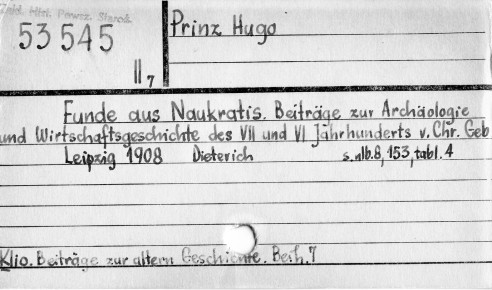 Zakł. Hist. Powsz. Staroż.
53 545
II 7
Prinz Hugo
Funde aus Naukratis. Beiträge zur Archäologie
und Wirtschaftsgeschichte des VII und VI Jahrhunderts v. Chr. Geb
Leipzig 1908 Dieterich s. nlb. 8, 153, tabl. 4
Klio. Beiträge zur altern Geschichte. Beih. 7